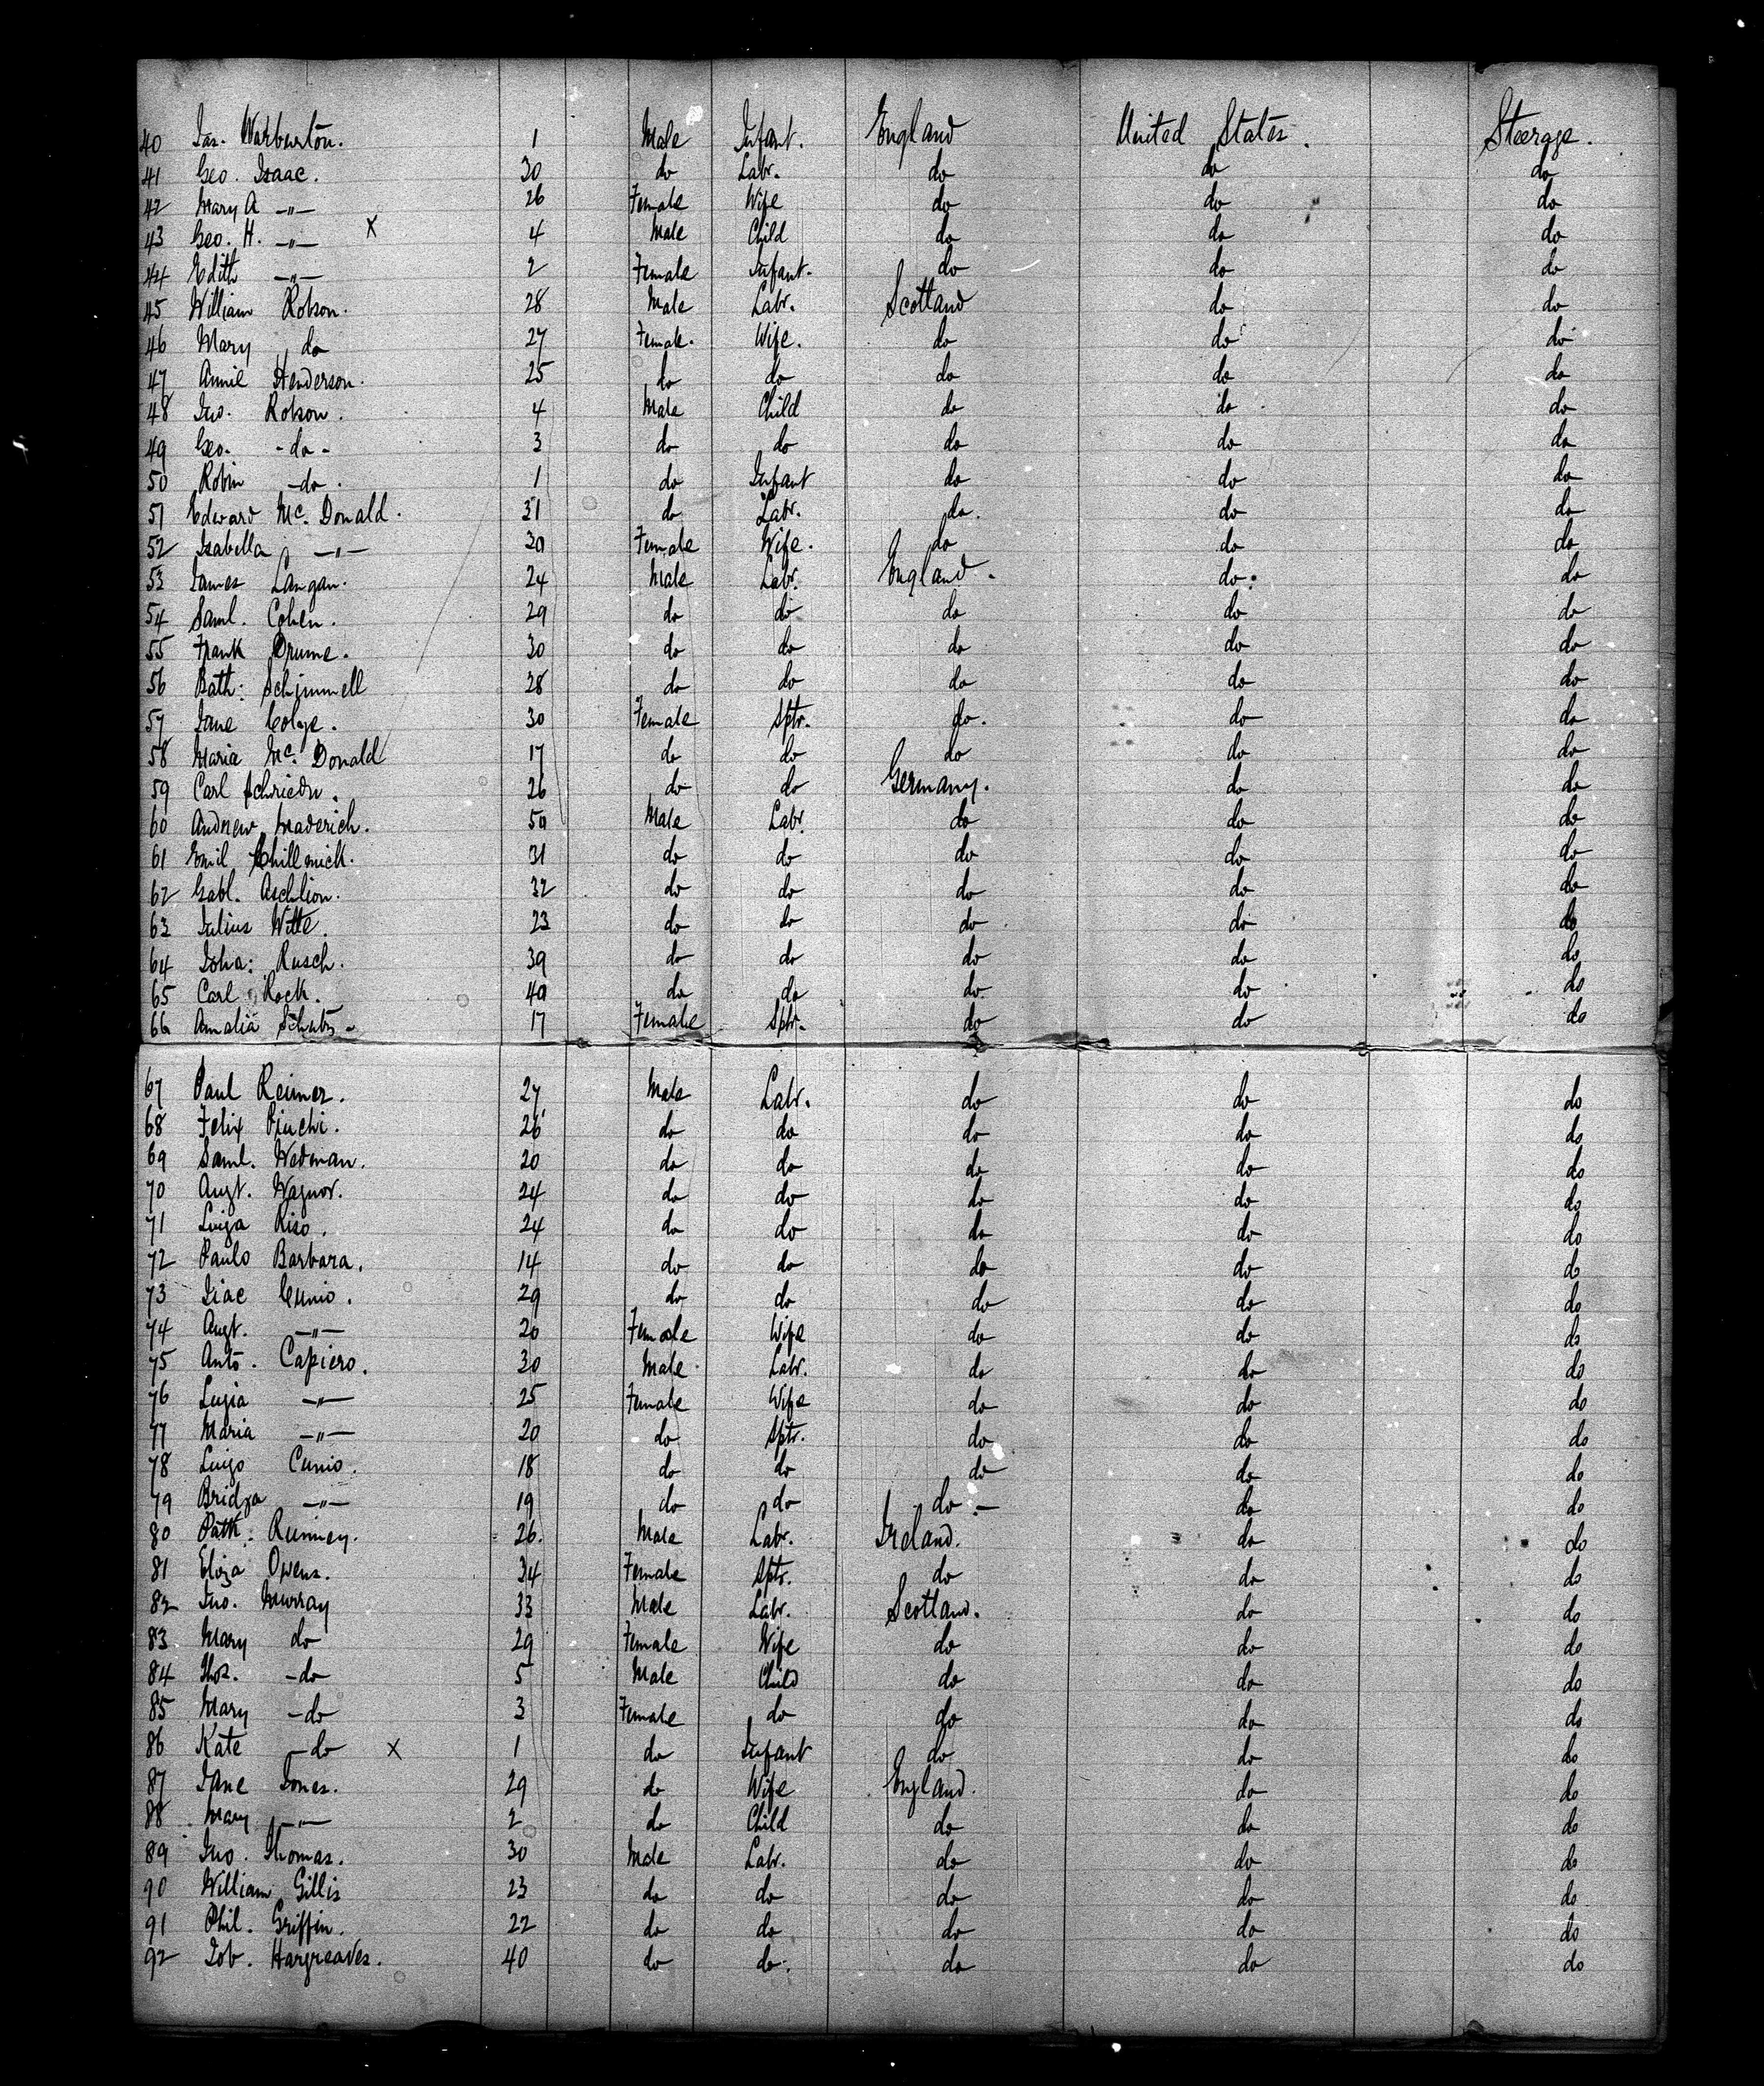 40 Jas. Warburton. 1 Male Infant. England United States. Steerage.
41 Geo. Isaac. 30 do Labr. do do do
42 Mary A -"- 26 Female Wife do do do
43 Geo. H. -"- x 4 Male Child do do do
44 Edith -"- 2 Female Infant. do do do
45 William Robson. 28 Male Labr. Scotland do do
46 Mary do 27 Female. Wife. do do do
47 Annie Henderson. 25 do do do do do
48 Jno. Robson. 4 Male Child do do do
49 Geo. -do- 3 do do do do do
50 Robin -do. 1 do Infant do do do
51 Edward Mc. Donald. 31 do Labr. do. do do
52 Isabella -"- 30 Female Wife. do do do
53 James Langan. 24 Male Labr. England. do. do
54 Saml. Cohen. 29 do do do do do
55 Frank Drume. 30 do do do do do
56 Bath: Schimmell 28 do do do do do
57 Jane 30 Female Sptr. do. do do
58 Maria Mc. Donald 17 do do do do do
59 Carl 26 do do Germany. do do
60 Andrew Maderich. 50 Male Labr. do do do
61 Emil 31 do do do do do
62 Gabl. Aschlion. 32 do do do do do
63 Julius Witte. 23 do do do do do
64 Joha: Rusch. 39 do do do do do
65 Carl Rock. 40 do do do do do
66 Amalia 17 Female Sptr. do do do
67 Paul Reimer. 27 Male Labr. do do do
68 Felix 26 do do do do do
69 Saml. Wedman. 20 do do do do do
70 Augt. Wagnor. 24 do do do do do
71 Luiga Riso. 24 do do do do do
72 Paulo Barbara. 14 do do do do do
73 Cunio. 29 do do do do do
74 Augt. -"- 20 Female Wife do do do
75 Anto. Capiero. 30 Male Labr. do do do
76 Lugia -"- 25 Female Wife do do do
77 Maria -"- 20 do Sptr. do do do
78 Luigo Cunio. 18 do do do do do
79 Bridga -"- 19 do do do - do do
80 Patk: Runney. 26. Male Labr. Ireland. do do
81 Eliza Owens. 34 Female Sptr. do do do
82 Jno. Murray 33 Male Labr. Scotland. do do
83 Mary do 29 Female Wife do do do
84 Thos. -do 5 Male Child do do do
85 Mary -do 3 Female do do do do
86 Kate -do x 1 do Infant do do do
87 Jane Jones. 29 do Wife England. do do
88 Mary -"- 2 do Child do do do
89 Jno. Thomas. 30 Male Labr. do do do
90 William Gillis 23 do do do do do
91 Phil. Griffin. 22 do do do do do
92 Job. Hargreaves. 40 do do. do do do